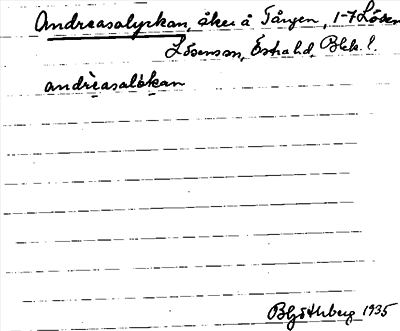 Andreasalyckan, åker å Tången, 1-7 Lösen
Lösens sn, Östra hd, Blek. l.
andrèasalökan
B. Götherberg 1935